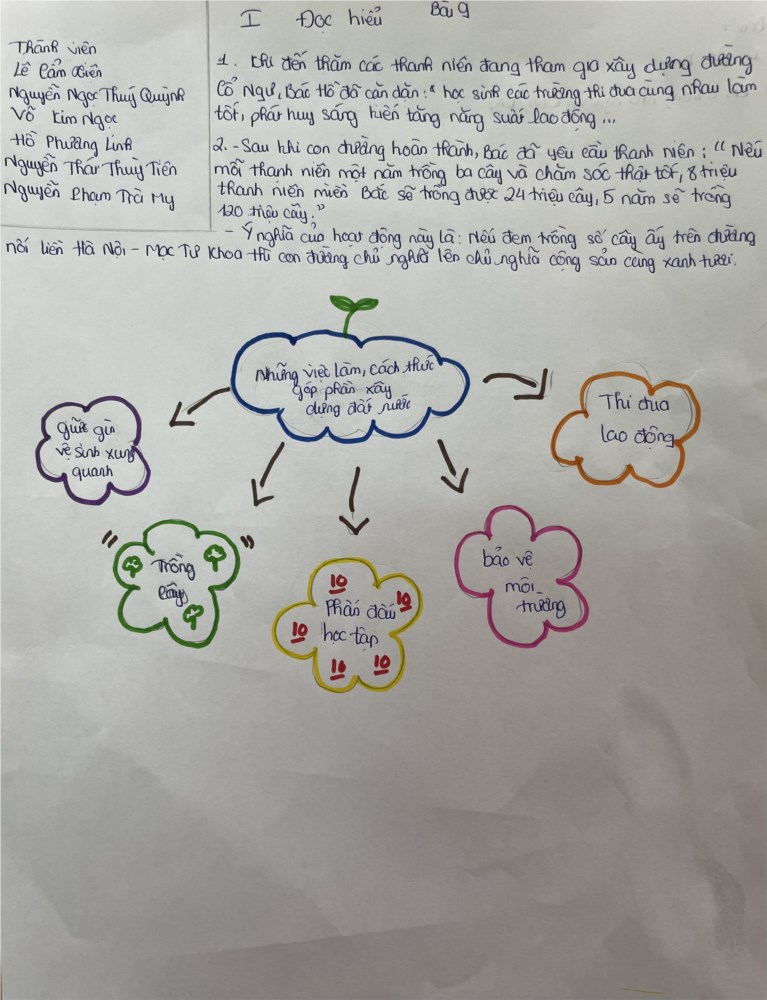 I Đọc hiểu Bài 9
Thành viên
Lê Cẩm Biên
Nguyễn Ngọc Thuý Quỳnh
Võ Kim Ngọc
Hồ Phương Linh
Nguyễn Thái Thuỳ Tiên
Nguyễn Phạm Trà My
1. Khi đến thăm các thanh niên đang tham gia xây dựng đường
Cổ Ngư, Bác Hồ đã căn dặn: "học sinh các trường thi đua cùng nhau làm
tốt, phát huy sáng kiến tăng năng suất lao động ...
2. - Sau khi con đường hoàn thành, Bác đã yêu cầu thanh niên: "Nếu
mỗi thanh niên một năm trồng ba cây và chăm sóc thật tốt, 8 triệu
thanh niên miền Bắc sẽ trồng được 24 triệu cây, 5 năm sẽ trồng
120 triệu cây."
- Ý nghĩa của hoạt động này là: Nếu đem trồng số cây ấy trên đường
nối liền Hà Nội - Mạc Tư Khoa thì con đường chủ nghĩa lên chủ nghĩa cộng sản càng xanh tươi.
Những việc làm, cách thức
góp phần xây
dựng đất nước
Thi đua
lao động
giữ gìn
vệ sinh xung
quanh
Trồng
cây
10
Phấn đấu 10
10 học tập
10 10
bảo vệ
môi
trường